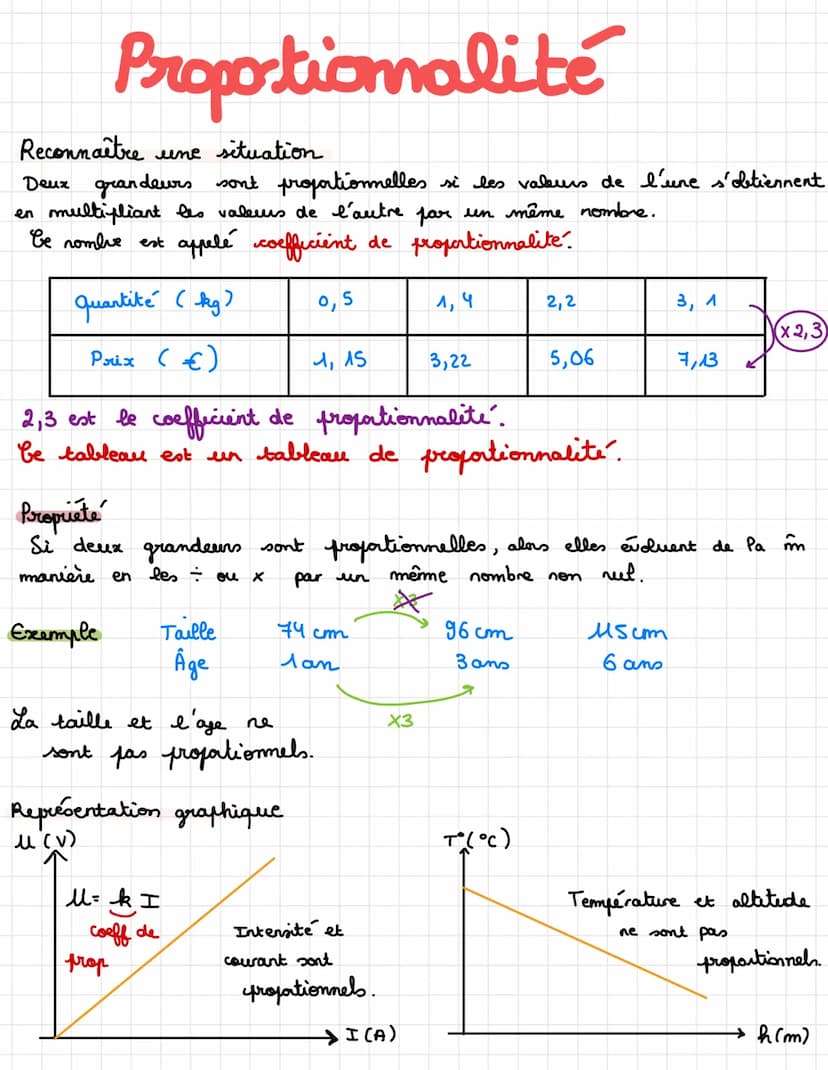 Proportionnalité
Reconnaître une situation
Deux grandeurs sont proportionnelles si les valeurs de l'une s'obtiennent
en multipliant les valeurs de l'autre par un même nombre.
Ce nombre est appelé coefficient de proportionnalité.
Quantité (kg) 0,5 1,4 2,2 3,1
x2,3
Prix (€) 1,15 3,22 5,06 7,13
2,3 est le coefficient de proportionnalité.
Ce tableau est un tableau de proportionnalité.
Propriété
Si deux grandeurs sont proportionnelles, alors elles évoluent de la m̂
manière en les ÷ ou x par un même nombre non nul.
x3
Exemple Taille 74 cm 96 cm 115 cm
Âge 1 an 3 ans 6 ans
x3
La taille et l'age ne
sont pas proportionnels.
Représentation graphique
U (V)
U = k I
coeff de
prop
Intensité et
courant sont
proportionnels.
I (A)
T° (°C)
Température et altitude
ne sont pas
proportionnels.
h (m)